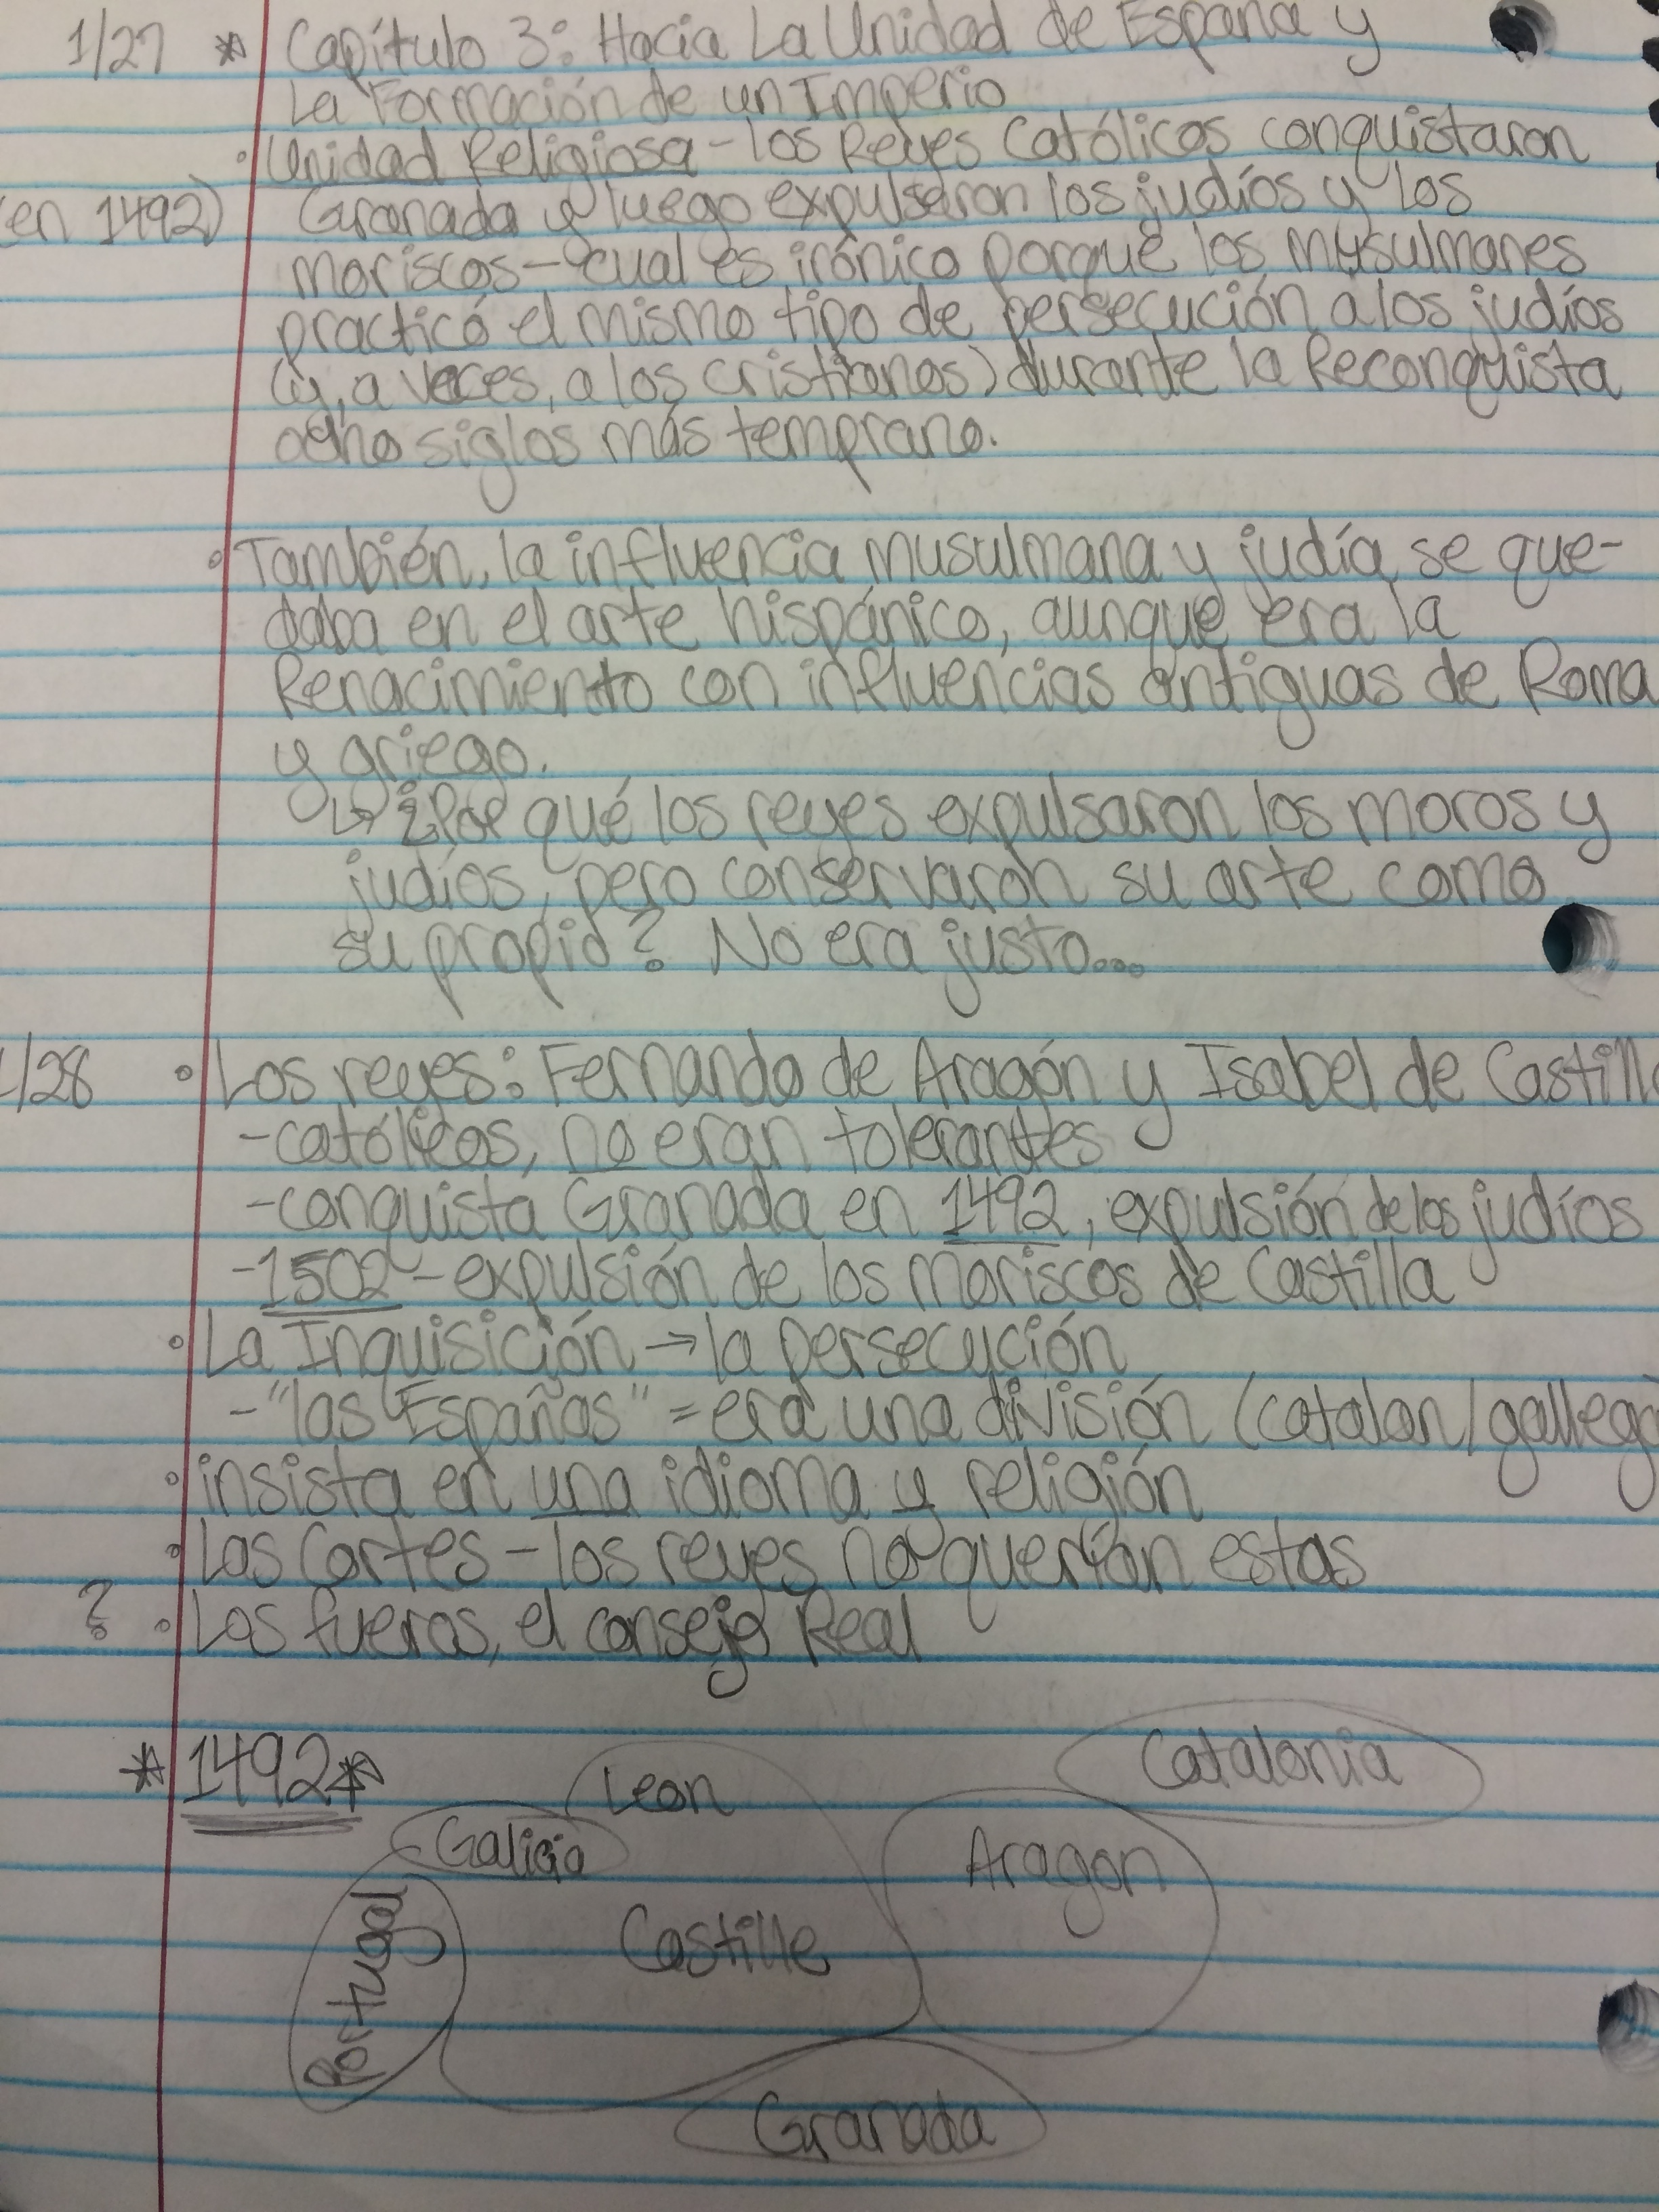 1/27 * Capítulo 3: Hacia La Unidad de España y
La Formación de un Imperio
• Unidad Religiosa - los Reyes Católicos conquistaron
(en 1492) Granada y luego expulsaron los judíos y los
moriscos - cual es irónico porque los musulmanes
practicó el mismo tipo de persecución a los judíos
(y, a veces, a los cristianos) durante la Reconquista
ocho siglos más temprano.
• También, la influencia musulmana y judía se que-
daba en el arte hispánico, aunque era la
Renacimiento con influencias antiguas de Roma
y griego.
↳ ¿Por qué los reyes expulsaron los moros y
judíos, pero conservaron su arte como
su propio? No era justo...
1/28 • Los reyes: Fernando de Aragón y Isabel de Castilla
- católicos, no eran tolerantes
- conquista Granada en 1492, expulsión de los judíos
- 1502 - expulsión de los moriscos de Castilla
• La Inquisición → la persecución
- "las Españas" = era una división (catalan/gallego)
• insista en una idioma y religión
• Las Cortes - los reyes no querían estas
? • Los fueros, el consejo Real
* 1492 *
Catalonia
Leon
Galicia
Aragon
Portugal
Castille
Granada